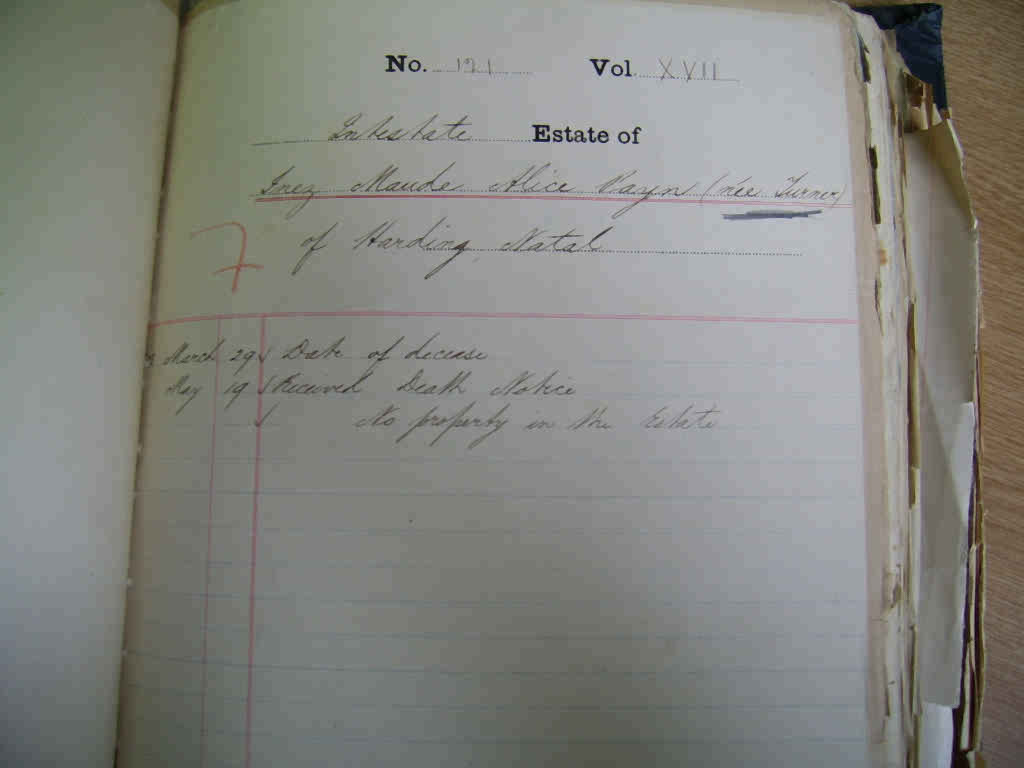 No. 121 Vol. XVII
Intestate Estate of
Inez Maude Alice Payn (née Turner)
of Harding, Natal
7
March 29 Date of decease
May 19 Received Death Notice
No property in the Estate